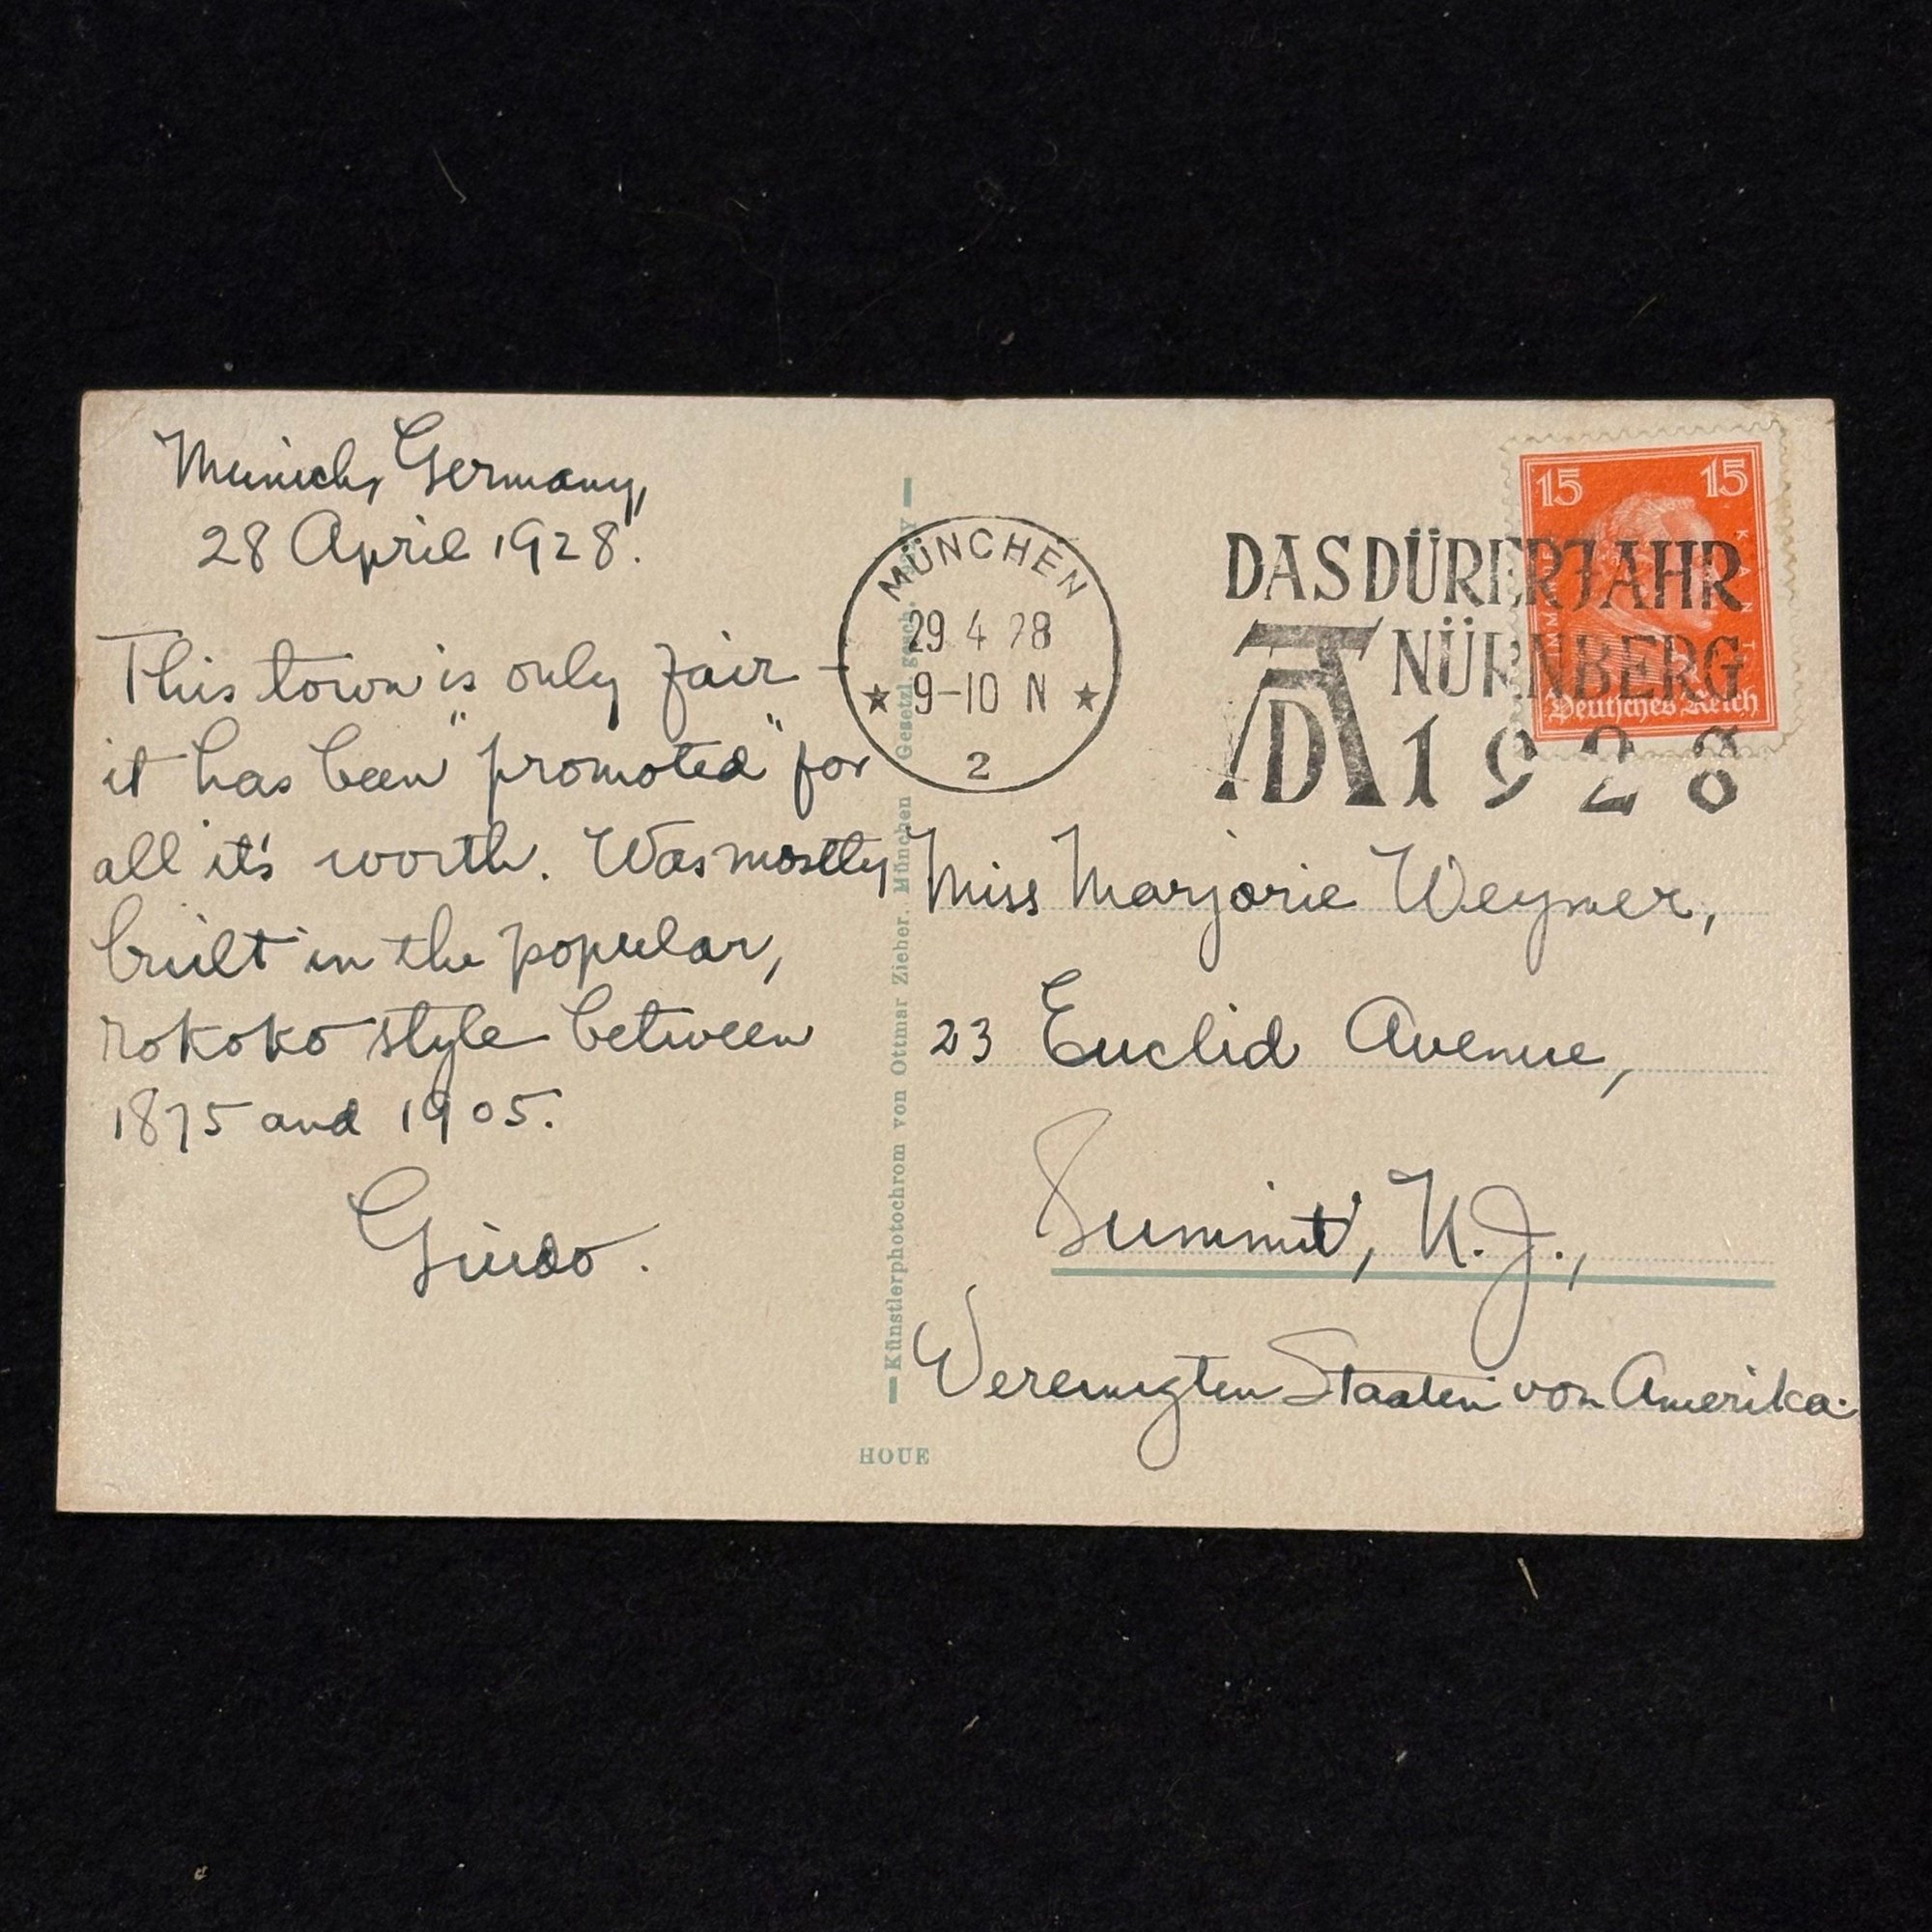 Munich, Germany,
28 April 1928.
This town is only fair –
it has been "promoted" for
all it's worth. Was mostly
built in the popular,
rokoko style between
1875 and 1905.
Guido.
Künstlerphotochrom von Ottmar Zieher, München Gesetzl. gesch.
HOUE
MÜNCHEN
29 4 28
★ 9-10 N ★
2
DAS DÜRERJAHR
NÜRNBERG
AD 1928
15 15
Deutsches Reich
Miss Marjorie Weymer,
23 Euclid Avenue,
Summit, N.J.,
Vereinigten Staaten von Amerika.